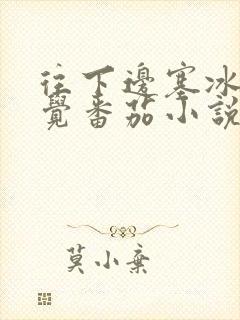 往下邊塞冰
覺番茄小說
莫小棄